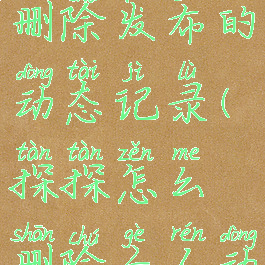 删除发布的
dòng tài jì lù
动态记录(
tàn tàn zěn me
探探怎么
shān chú gè rén dòng
删除个人动